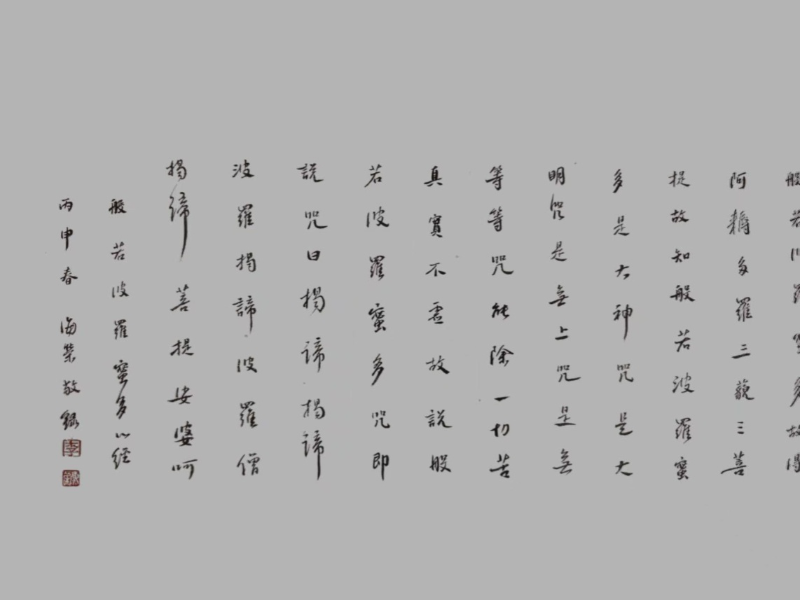 般若波羅蜜多故得
阿耨多羅三藐三菩
提故知般若波羅蜜
多是大神咒是大
明咒是無上咒是無
等等咒能除一切苦
真實不虛故說般
若波羅蜜多咒即
說咒曰揭諦揭諦
波羅揭諦波羅僧
揭諦菩提娑婆呵
般若波羅蜜多心經
丙申春海榮敬錄